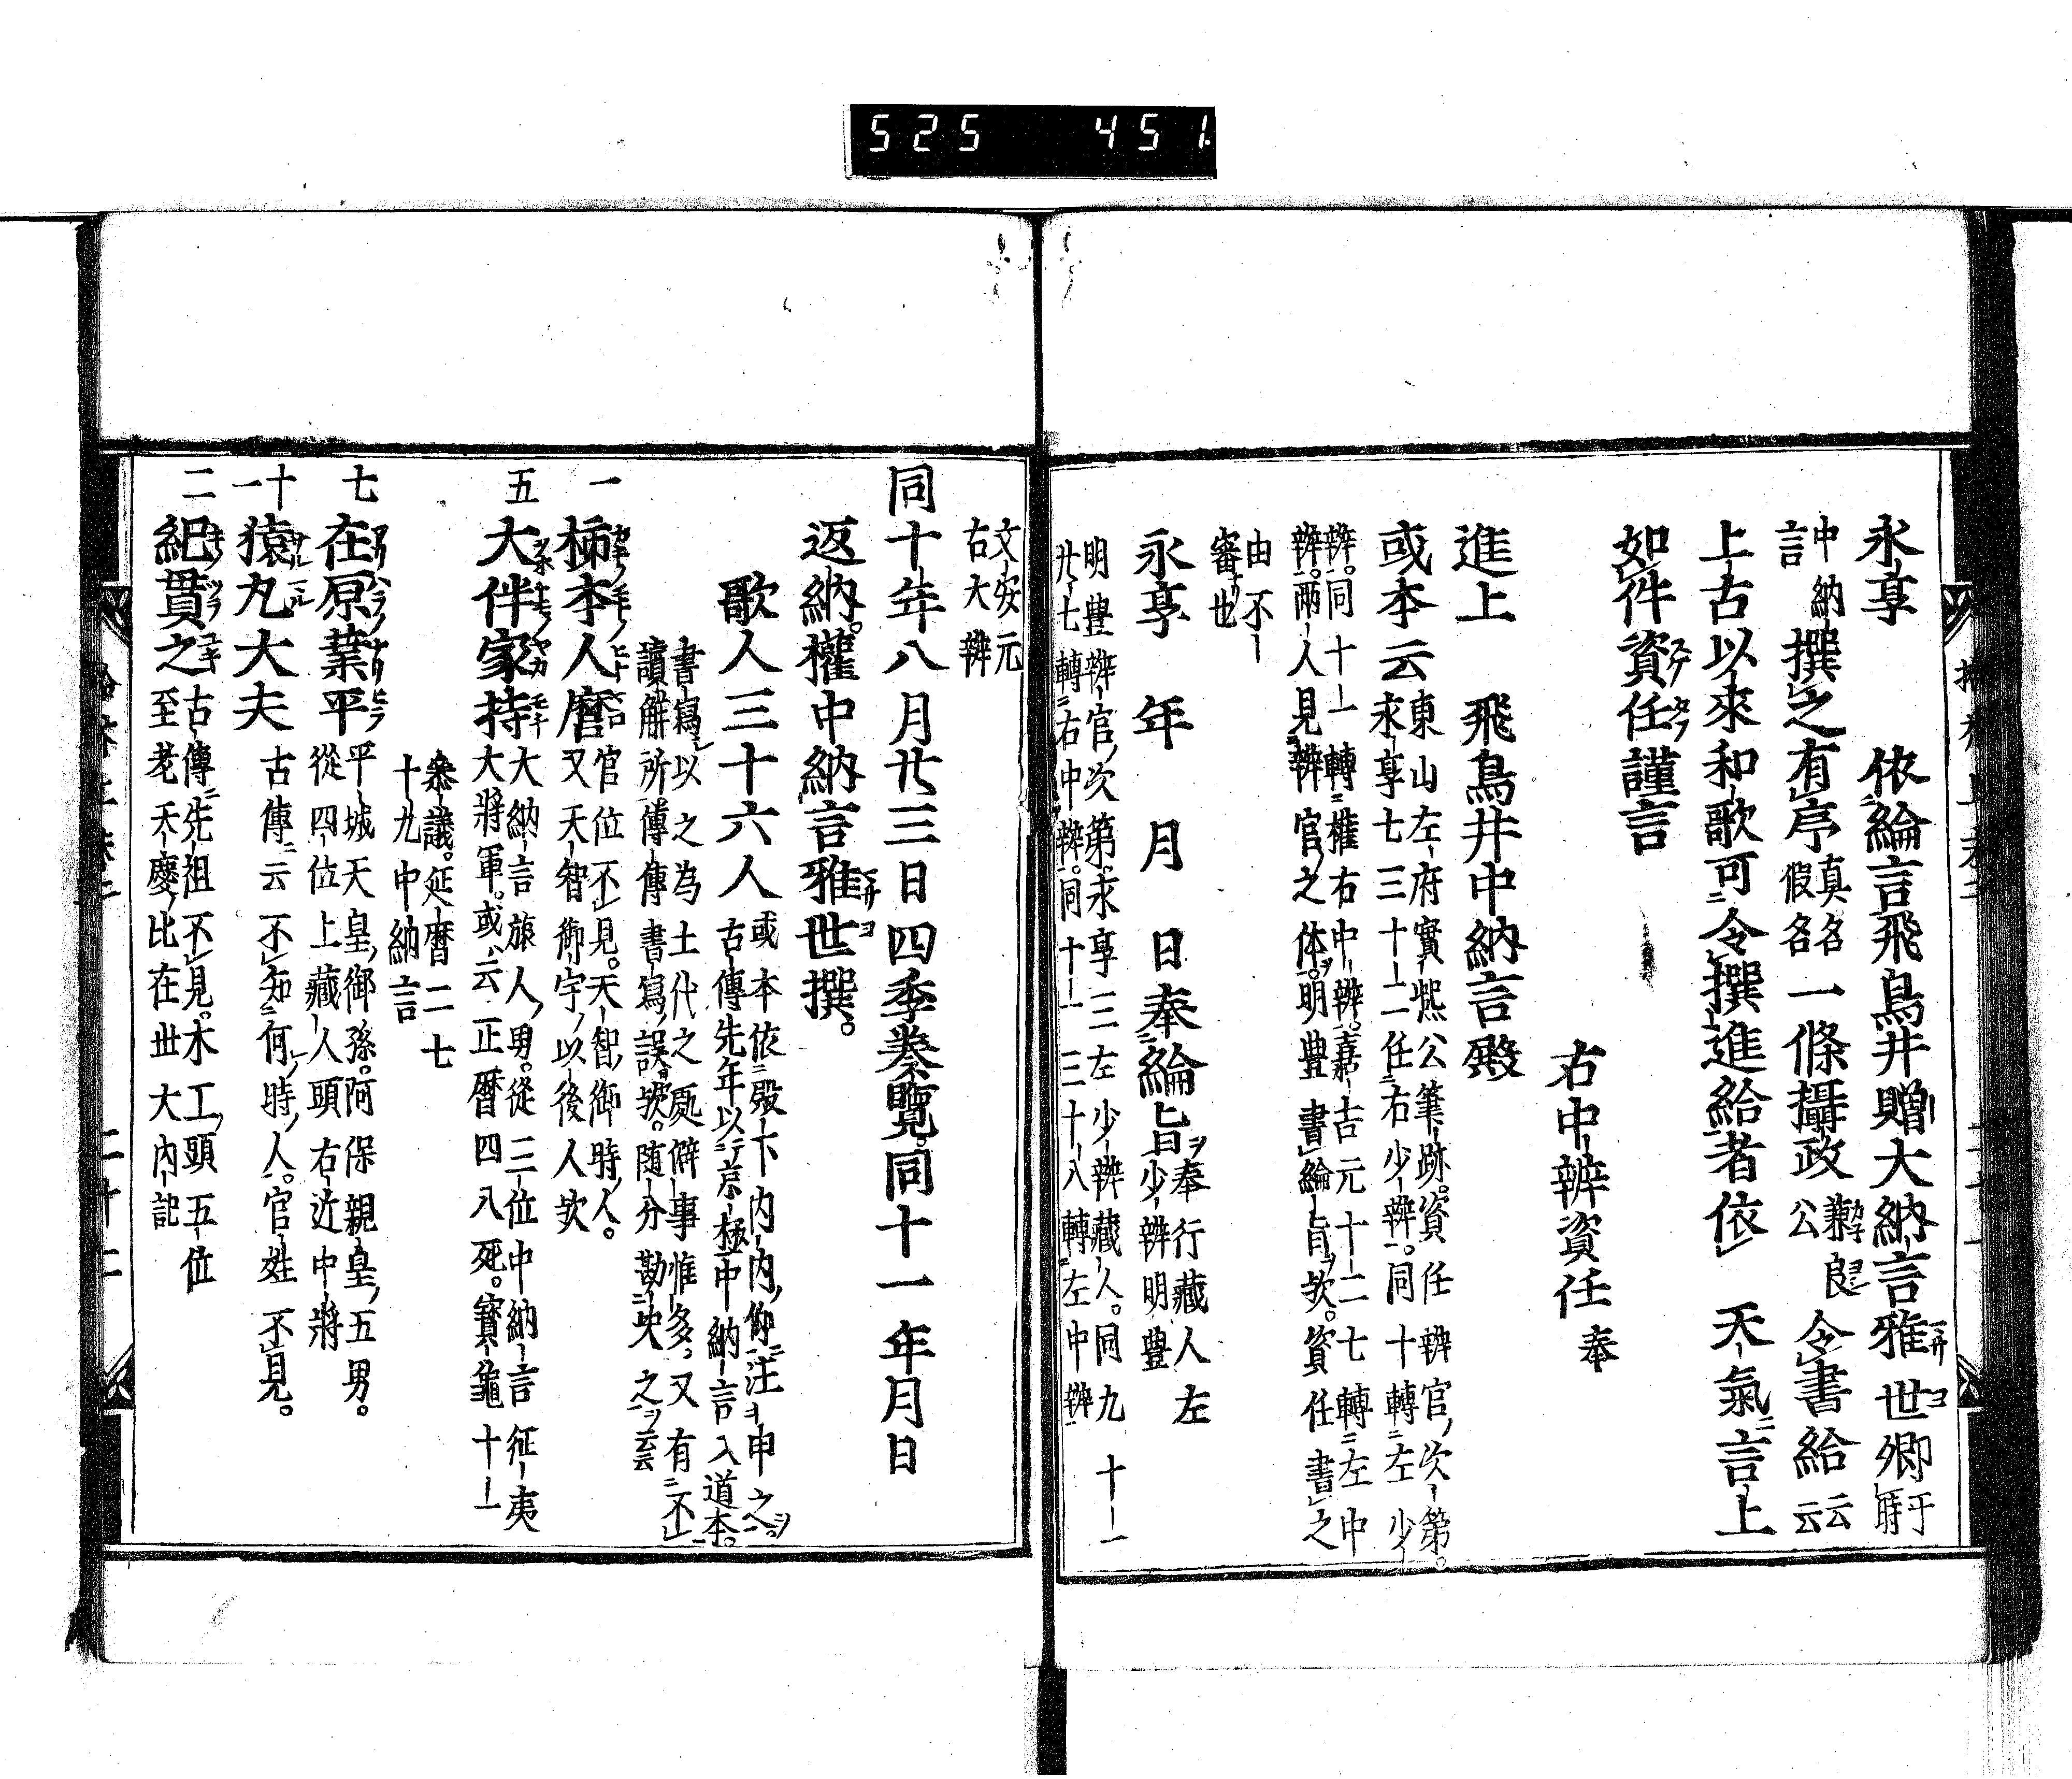 525 451
永享 依綸言飛鳥井贈大納言雅世卿于時
中納言撰之有序真名假名一條攝政兼良公令書給云云
上古以來和歌可令撰進給者依 天氣言上
如件資任謹言
右中辨資任奉
進上 飛鳥井中納言殿
或本云東山左府實熙公筆跡資任辨官次第
永享七三十一任右少辨同十轉左少
辨同十一轉權右中辨嘉吉元十二七轉左中
辨兩人見辨官之体明豊書綸旨歟資任書之
由不審也
永享 年 月 日奉綸旨奉行藏人左少辨明豊
明豊辨官次第永享三左少辨藏人同九十一
廿七轉右中辨同十一三十八轉左中辨
文安元
右大辨
同十年八月廿三日四季奏覽同十一年月日
返納權中納言雅世撰。
歌人三十六人或本依殿下内内仰注申之
古傳先年以京極中納言入道本
書寫以之為土代之處僻事惟多又有不
讀解所傳傳書寫誤歟随分勘決之云云
一 柿本人麿官位不見。天智御時人。
又天智御宇以後人歟
五 大伴家持大納言旅人男。從三位中納言征夷
大將軍。或云正暦四八死。寶龜十一
叅議。延暦二七
十九中納言
七 在原業平平城天皇御孫。阿保親皇五男。
從四位上藏人頭右近中將
十一 猿丸大夫古傳云不知何時人。官姓不見。
二 紀貫之古傳先祖不見。木工頭五位
至老天慶比在世大内記